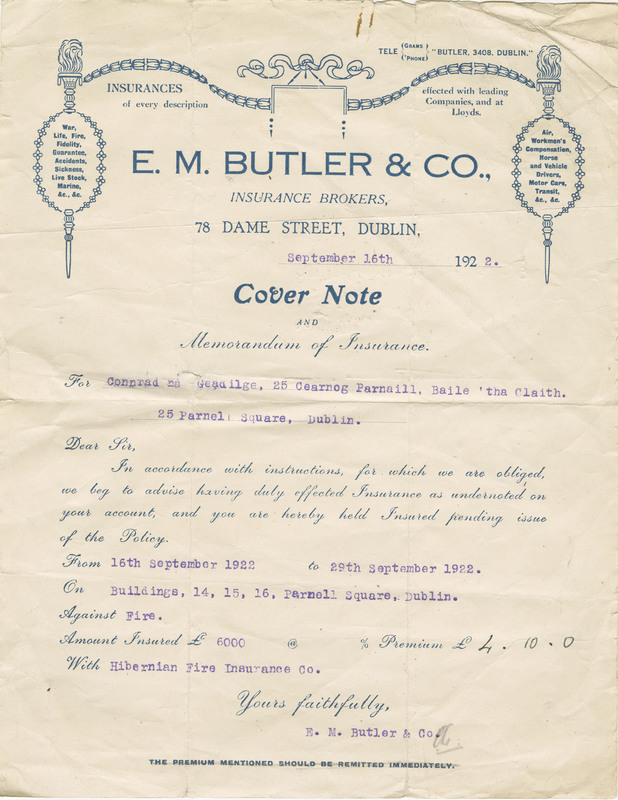 TELE (GRAMS) ('PHONE) "BUTLER, 3408, DUBLIN."
INSURANCES
of every description
effected with leading
Companies, and at
Lloyds.
War,
Life, Fire,
Fidelity,
Guarantee,
Accidents,
Sickness,
Live Stock,
Marine,
&c., &c.
Air,
Workmen's
Compensation,
Horse
and Vehicle
Drivers,
Motor Cars,
Transit,
&c., &c.
E. M. BUTLER & CO.,
INSURANCE BROKERS,
78 DAME STREET, DUBLIN,
September 16th 1922.
Cover Note
AND
Memorandum of Insurance.
For Connrad na Geadilge, 25 Cearnog Parnaill, Baile 'tha Claith.
25 Parnell Square, Dublin.
Dear Sir,
In accordance with instructions, for which we are obliged,
we beg to advise having duly effected Insurance as undernoted on
your account, and you are hereby held Insured pending issue
of the Policy.
From 16th September 1922 to 29th September 1922.
On Buildings, 14, 15, 16, Parnell Square, Dublin.
Against Fire.
Amount Insured £ 6000 @ % Premium £ 4 . 10 . 0
With Hibernian Fire Insurance Co.
Yours faithfully,
E. M. Butler & Co.
THE PREMIUM MENTIONED SHOULD BE REMITTED IMMEDIATELY.